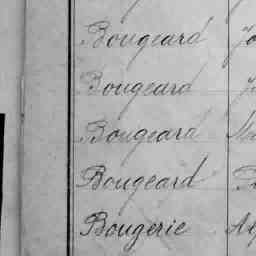 Bougeard
Bougeard
Bougeard
Bougeard
Bougerie